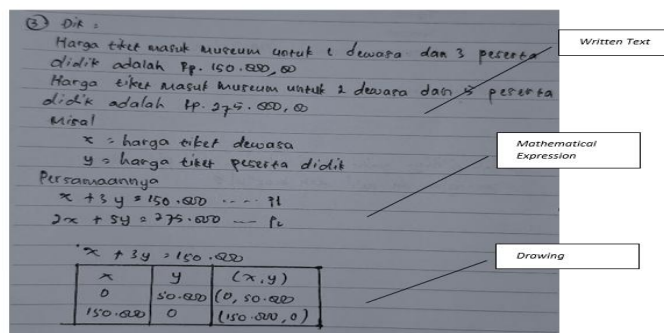 ③ Dik :
Harga tiket masuk museum untuk 1 dewasa dan 3 peserta
didik adalah Rp. 150.000,00
Harga tiket masuk museum untuk 2 dewasa dan 5 peserta
didik adalah Rp. 275.000,00
Misal
x = harga tiket dewasa
y = harga tiket peserta didik
Persamaannya
x + 3y = 150.000 ..... P1
2x + 5y = 275.000 ... P2
x + 3y = 150.000
x y (x,y)
0 50.000 (0, 50.000
150.000 0 (150.000, 0)
Written Text
Mathematical
Expression
Drawing